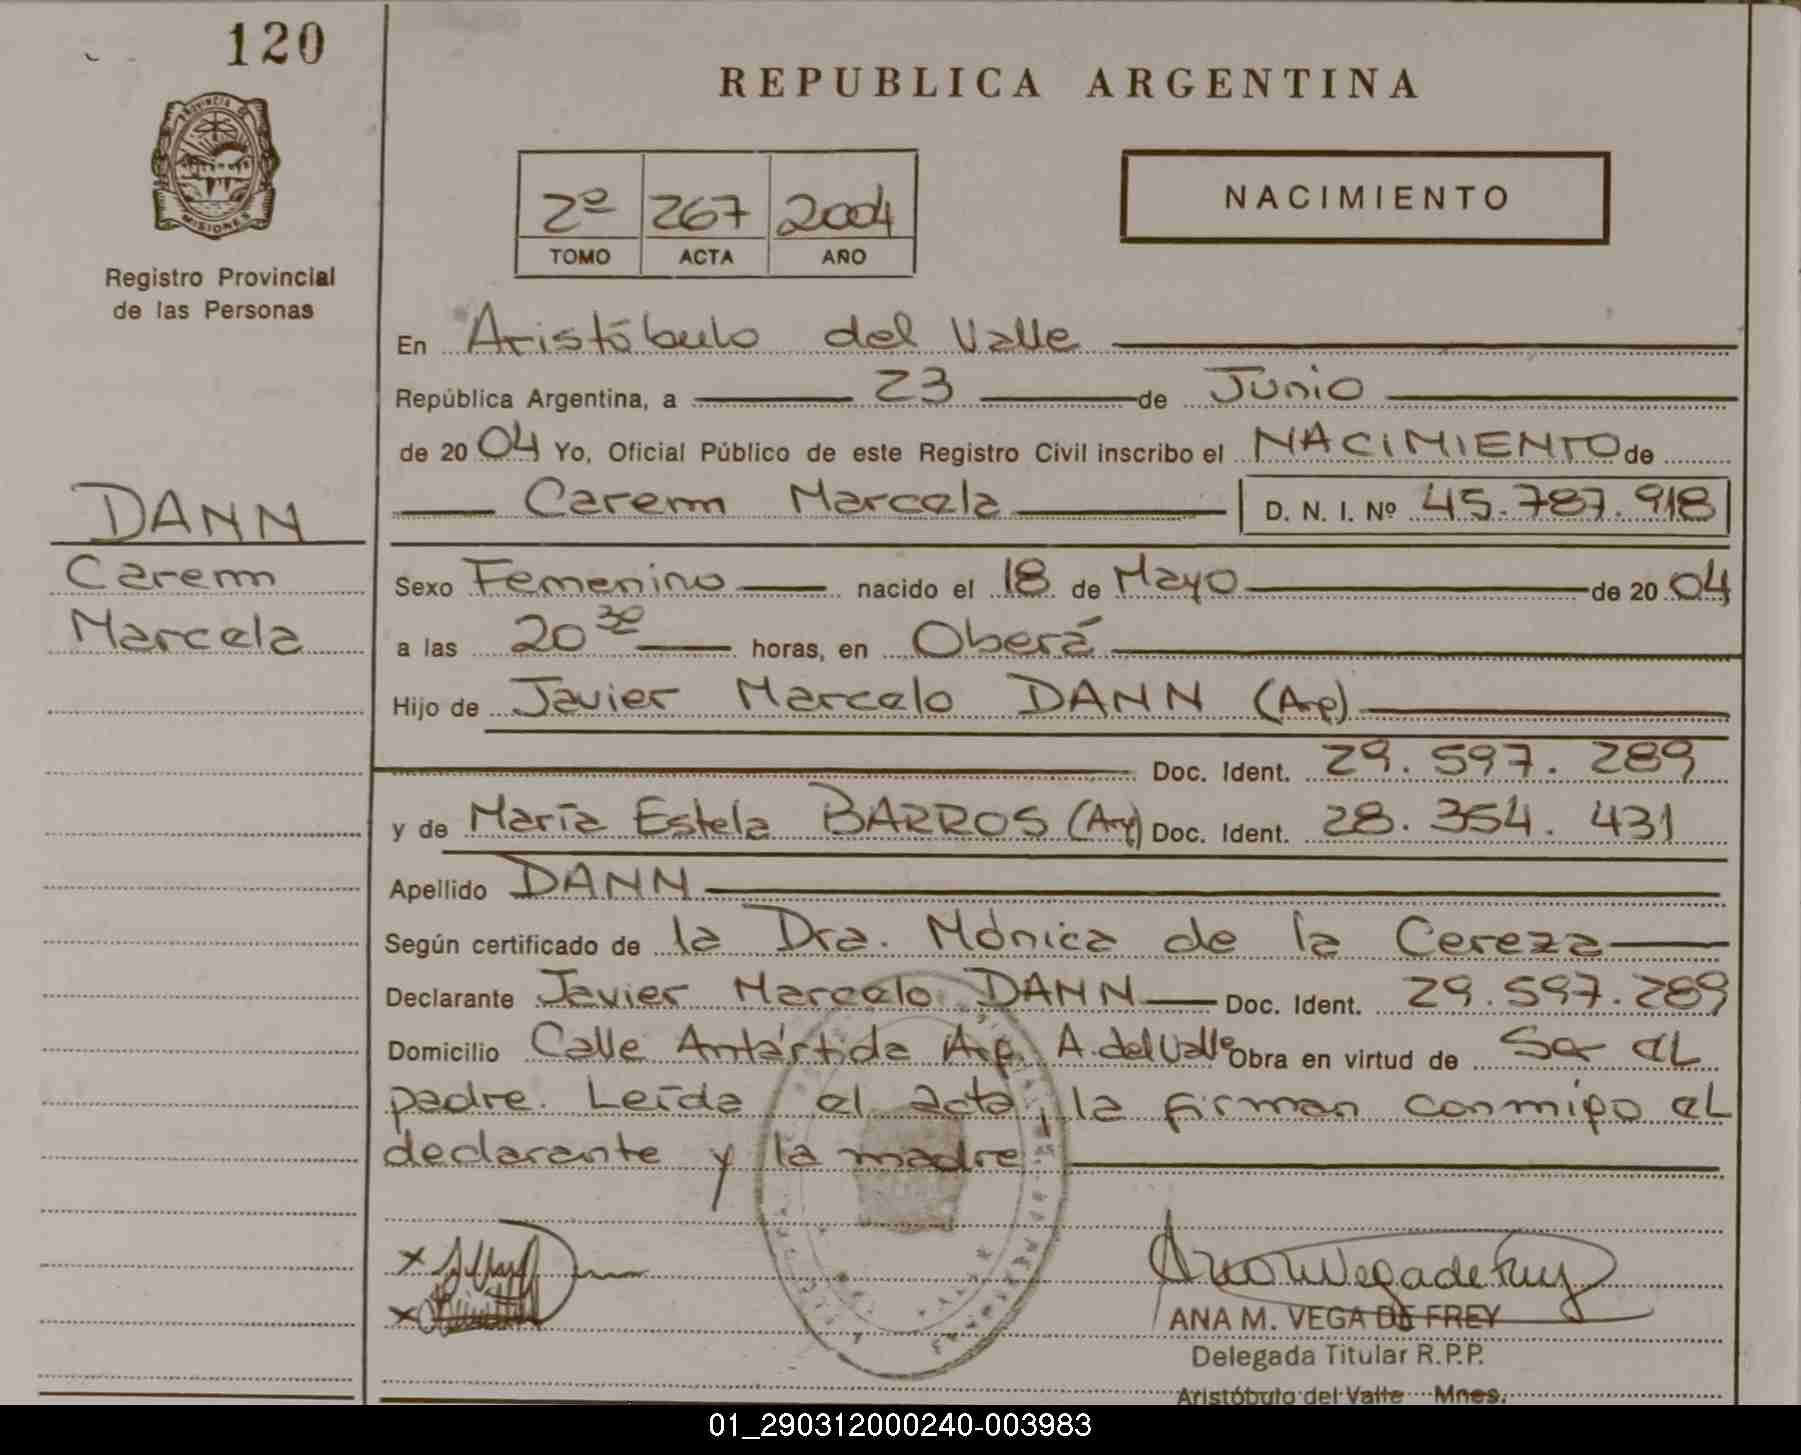 120
PROVINCIA DE
MISIONES
Registro Provincial
de las Personas
DANN
Carem
Marcela
REPUBLICA ARGENTINA
2º 267 2004
TOMO ACTA AÑO
NACIMIENTO
En Aristóbulo del Valle
República Argentina, a 23 de Junio
de 2004 Yo, Oficial Público de este Registro Civil inscribo el NACIMIENTO de
Carem Marcela D. N. I. Nº 45.787.918
Sexo Femenino nacido el 18 de Mayo de 2004
a las 20 30 horas, en Oberá
Hijo de Javier Marcelo DANN (Arg)
Doc. Ident. 29.597.289
y de María Estela BARROS (Arg) Doc. Ident. 28.354.431
Apellido DANN
Según certificado de la Dra. Mónica de la Cereza
Declarante Javier Marcelo DANN Doc. Ident. 29.597.289
Domicilio Calle Antártida Arg. A. del Valle Obra en virtud de Ser el
padre. Leída el acta, la firman conmigo el
declarante y la madre
ANA M. VEGA DE FREY
Delegada Titular R.P.P.
Aristóbulo del Valle Mnes.
01_290312000240-003983